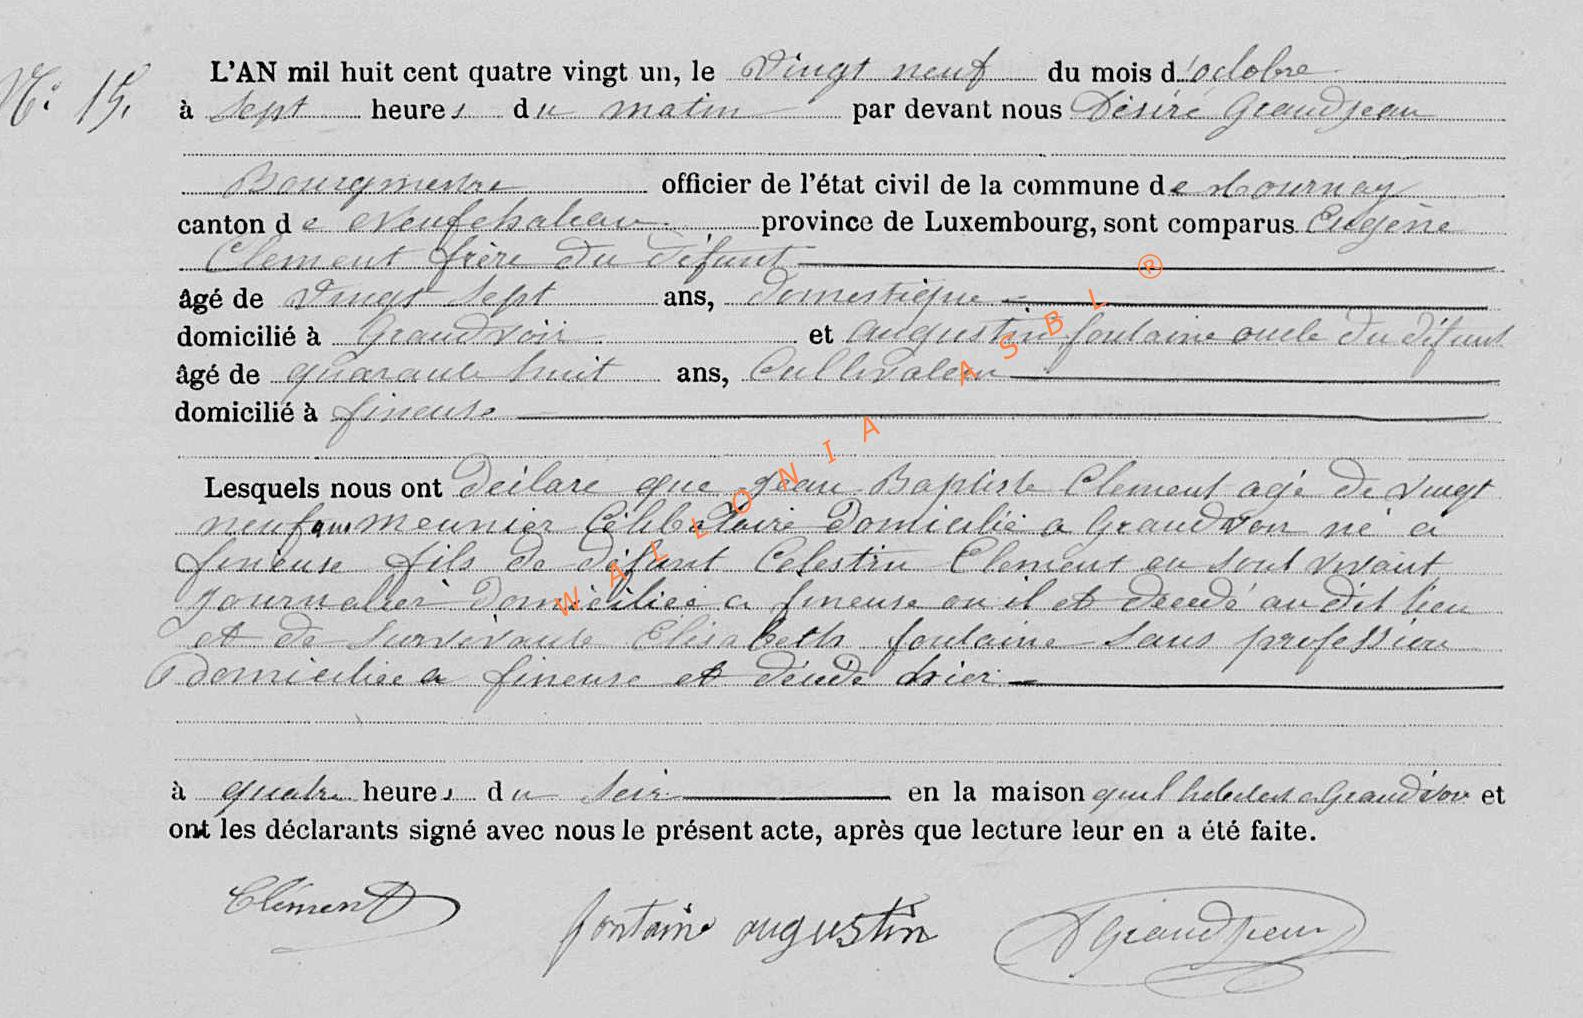 N° 15.
L'AN mil huit cent quatre vingt un, le Vingt neuf du mois d'octobre
à Sept heures du matin par devant nous Désiré Grandjean
Bourgmestre officier de l'état civil de la commune de Tournay
canton de Neufchateau province de Luxembourg, sont comparus Eugène
Clement frère du défunt
âgé de vingt sept ans, domestique
domicilié à Grandvoir et augustin fontaine oncle du défunt
âgé de quarante huit ans, Cultivateur
domicilié à fineuse
Lesquels nous ont déclaré que Jean Baptiste Clement agé de vingt
neuf ans meunier Célibataire domicilié a Grandvoir né a
fineuse fils de défunt Celestin Clement en sont vivant
journalier domiciliée a fineuse ou il et decedé au dit lieu
et de survivante Elisabeth fontaine sans profession
Domiciliée a fineuse et décédé hier
à quatre heures du soir en la maison quil habitait a Grandvoir et
ont les déclarants signé avec nous le présent acte, après que lecture leur en a été faite.
Clément
fontaine augustin
D Grandjean
WALLONIA ASBL ®